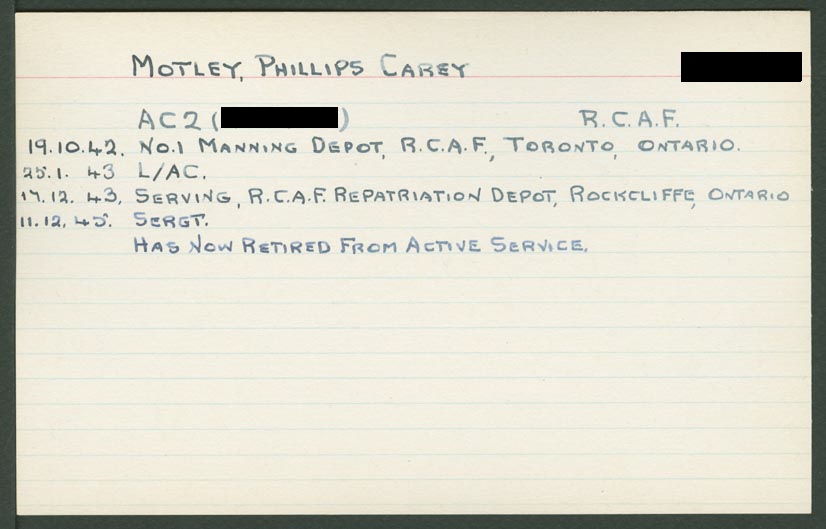 MOTLEY, PHILLIPS CAREY
AC2 ( ) R.C.A.F.
19.10.42. NO.1 MANNING DEPOT, R.C.A.F., TORONTO, ONTARIO.
25.1.43 L/AC.
17.12.43. SERVING, R.C.A.F. REPATRIATION DEPOT, ROCKCLIFFE, ONTARIO
11.12.45. SERGT.
HAS NOW RETIRED FROM ACTIVE SERVICE.